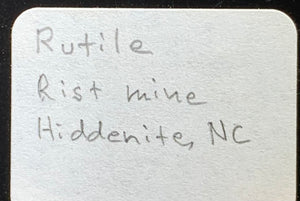 Rutile
Rist mine
Hiddenite, NC